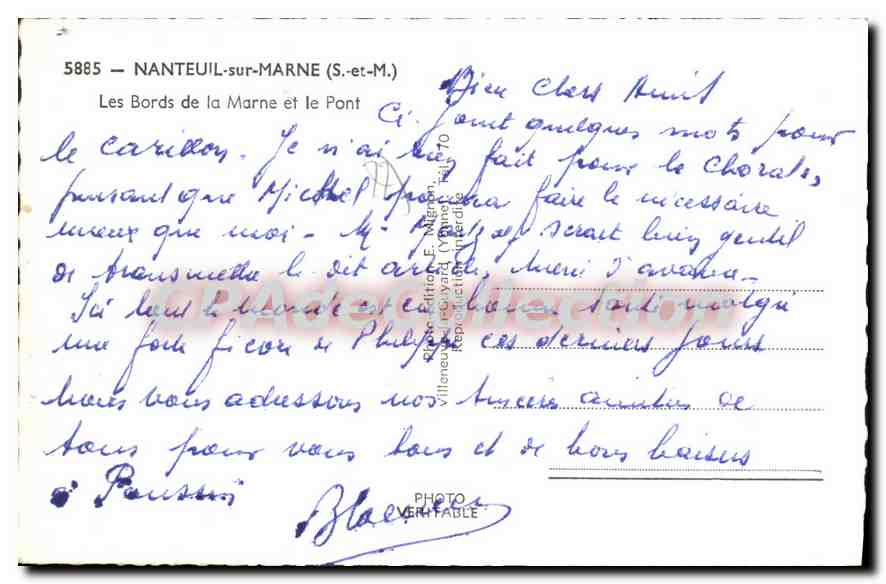 5885 — NANTEUIL-sur-MARNE (S.-et-M.)
Les Bords de la Marne et le Pont
Bien Chers Amis
Ci joint quelques mots pour
le carillon. Je n'ai rien fait pour la Chorale,
pensant que Michel pourra faire le nécessaire
mieux que moi - Mr serait bien gentil
de transmettre le dit article, merci d'avance -
Ici tout le monde est en bonne santé malgré
une forte de Philippe ces derniers jours
Nous vous adressons nos sincères amitiés de
tous pour vous tous et de bons baisers
à
Photo-édition E. Mignon,
Villeneuve-la-Guyard (Yonne) Tél. 70
Reproduction interdite
PHOTO
VERITABLE
CPAdeCollection